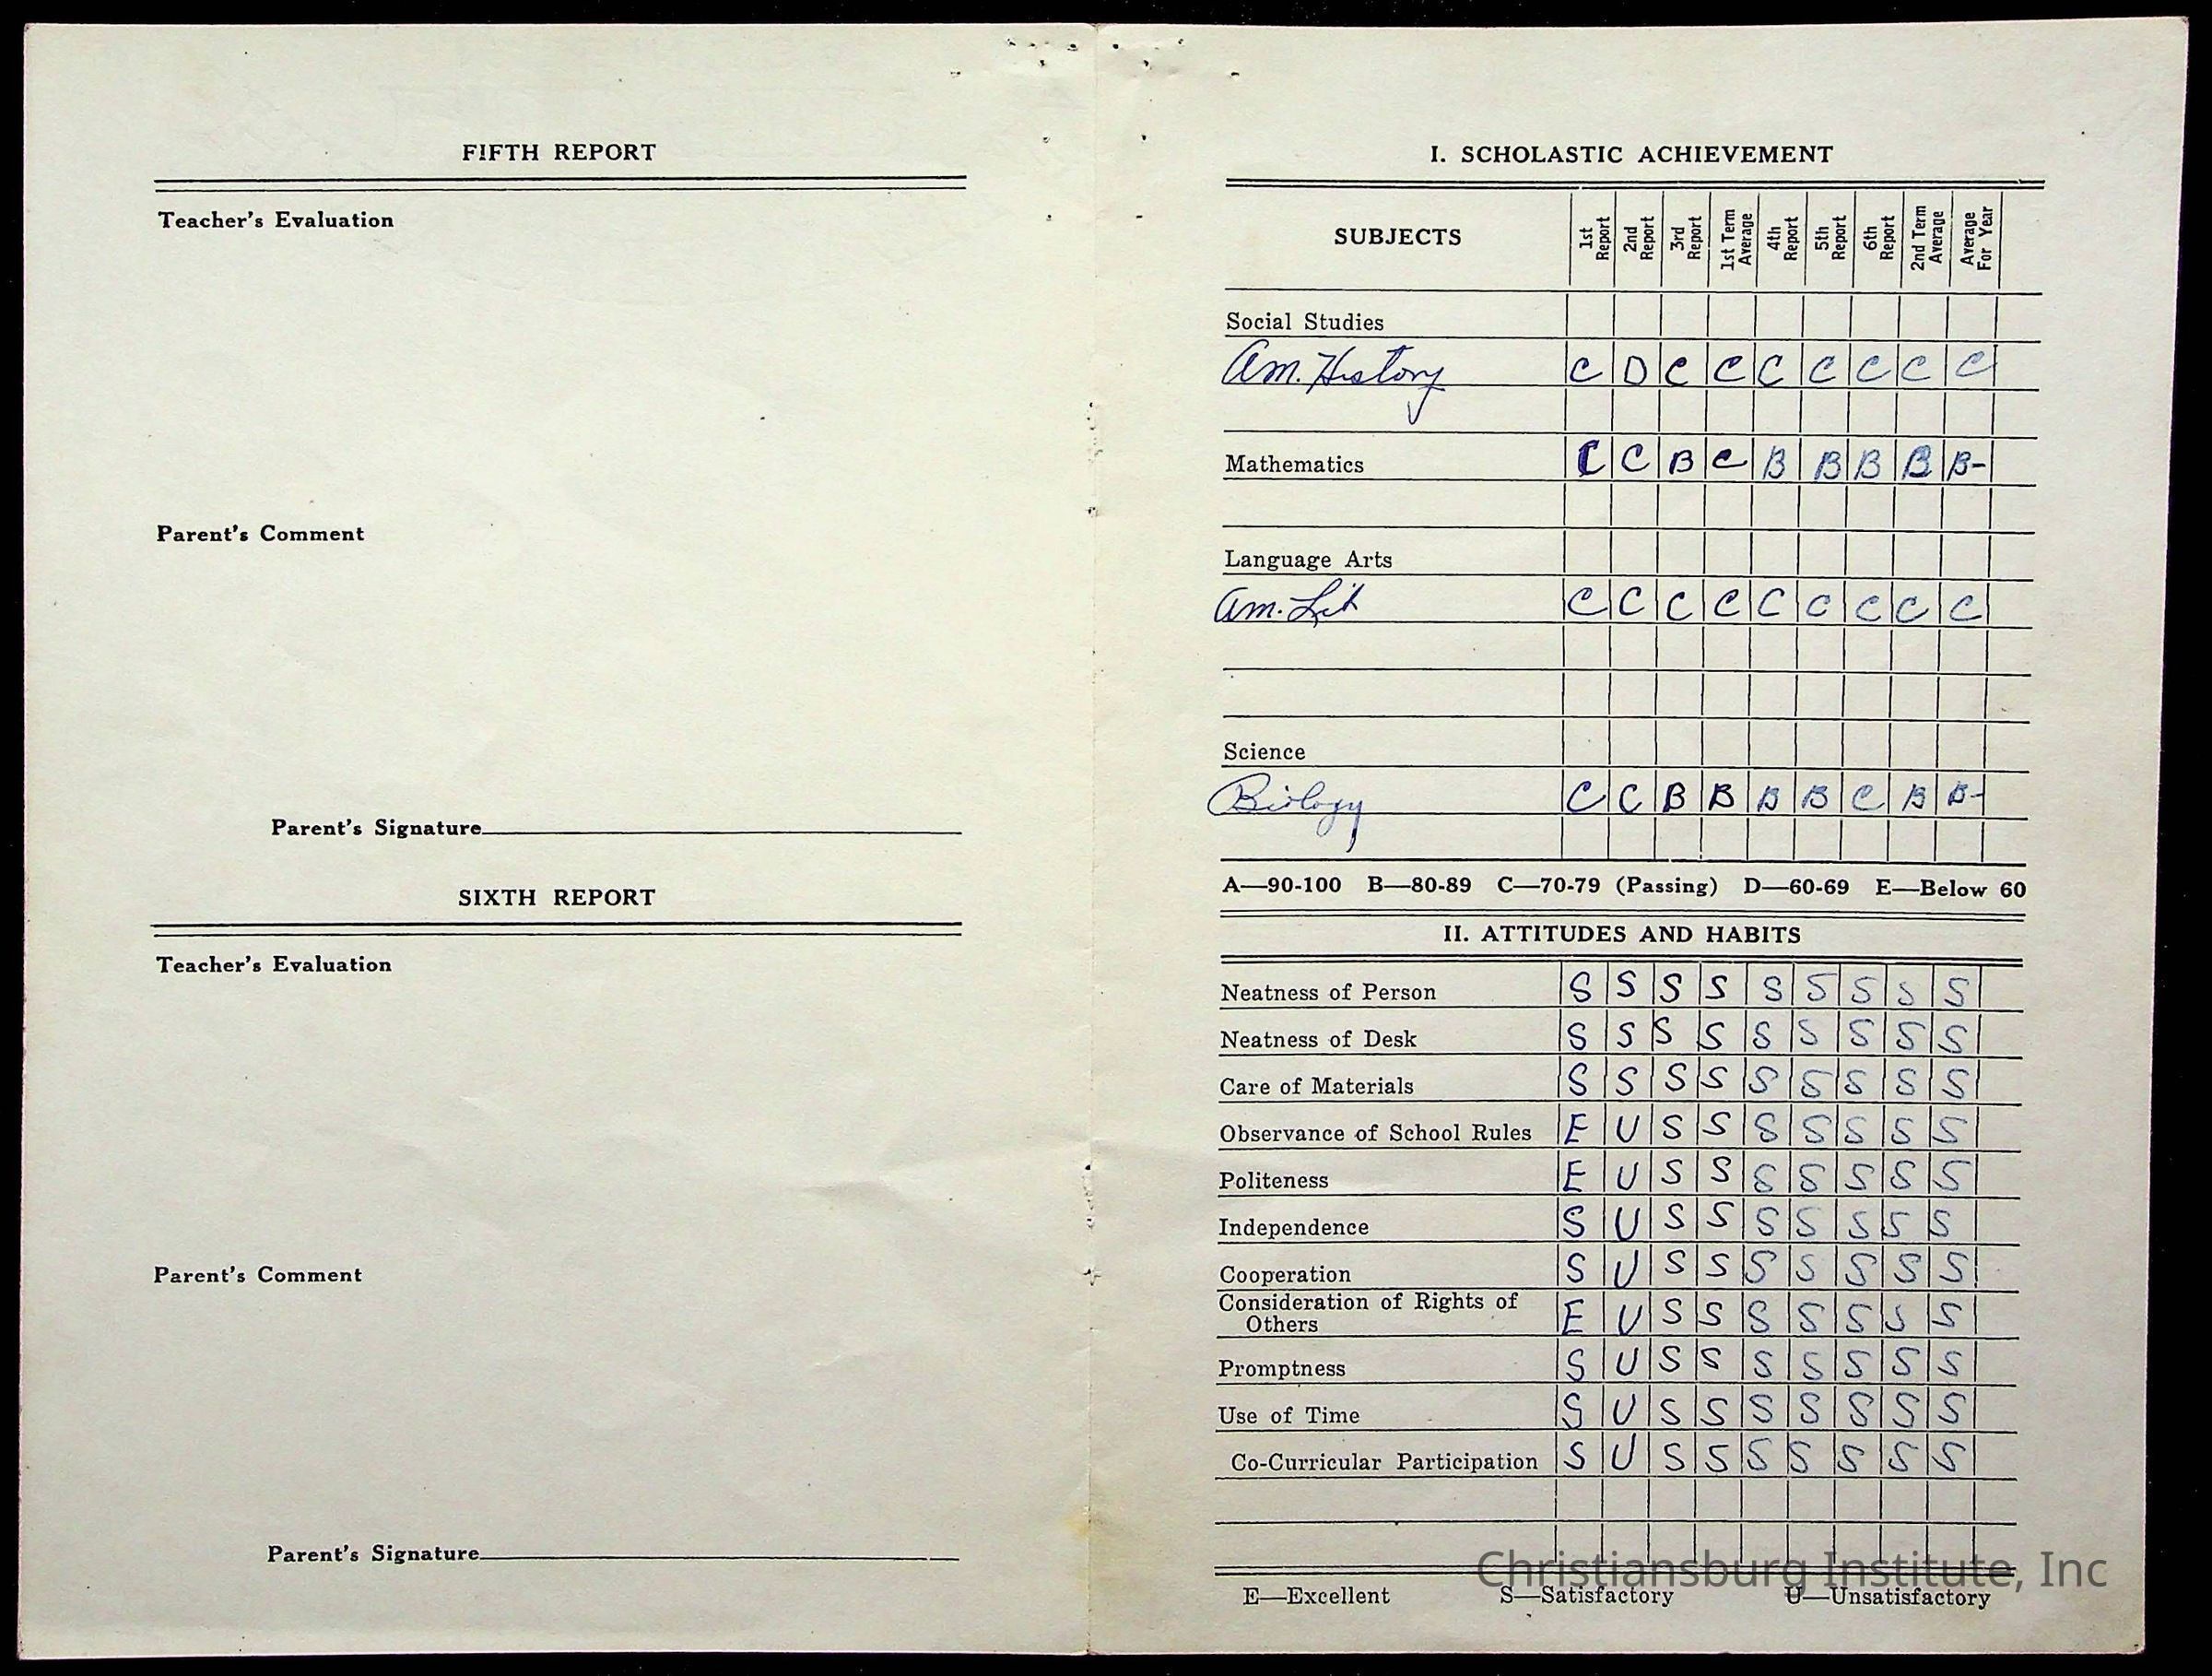 FIFTH REPORT
Teacher's Evaluation
Parent's Comment
Parent's Signature
SIXTH REPORT
Teacher's Evaluation
Parent's Comment
Parent's Signature
I. SCHOLASTIC ACHIEVEMENT
SUBJECTS 1st Report 2nd Report 3rd Report 1st Term Average 4th Report 5th Report 6th Report 2nd Term Average Average For Year
Social Studies
Am. History C D C C C C C C C
Mathematics C C B C B B B B B-
Language Arts
Am. Lit C C C C C C C C C
Science
Biology C C B B B B C B B-
A—90-100 B—80-89 C—70-79 (Passing) D—60-69 E—Below 60
II. ATTITUDES AND HABITS
Neatness of Person S S S S S S S S S
Neatness of Desk S S S S S S S S S
Care of Materials S S S S S S S S S
Observance of School Rules E U S S S S S S S
Politeness E U S S S S S S S
Independence S U S S S S S S S
Cooperation S U S S S S S S S
Consideration of Rights of
Others E U S S S S S S S
Promptness S U S S S S S S S
Use of Time S U S S S S S S S
Co-Curricular Participation S U S S S S S S S
Christiansburg Institute, Inc
E—Excellent S—Satisfactory U—Unsatisfactory